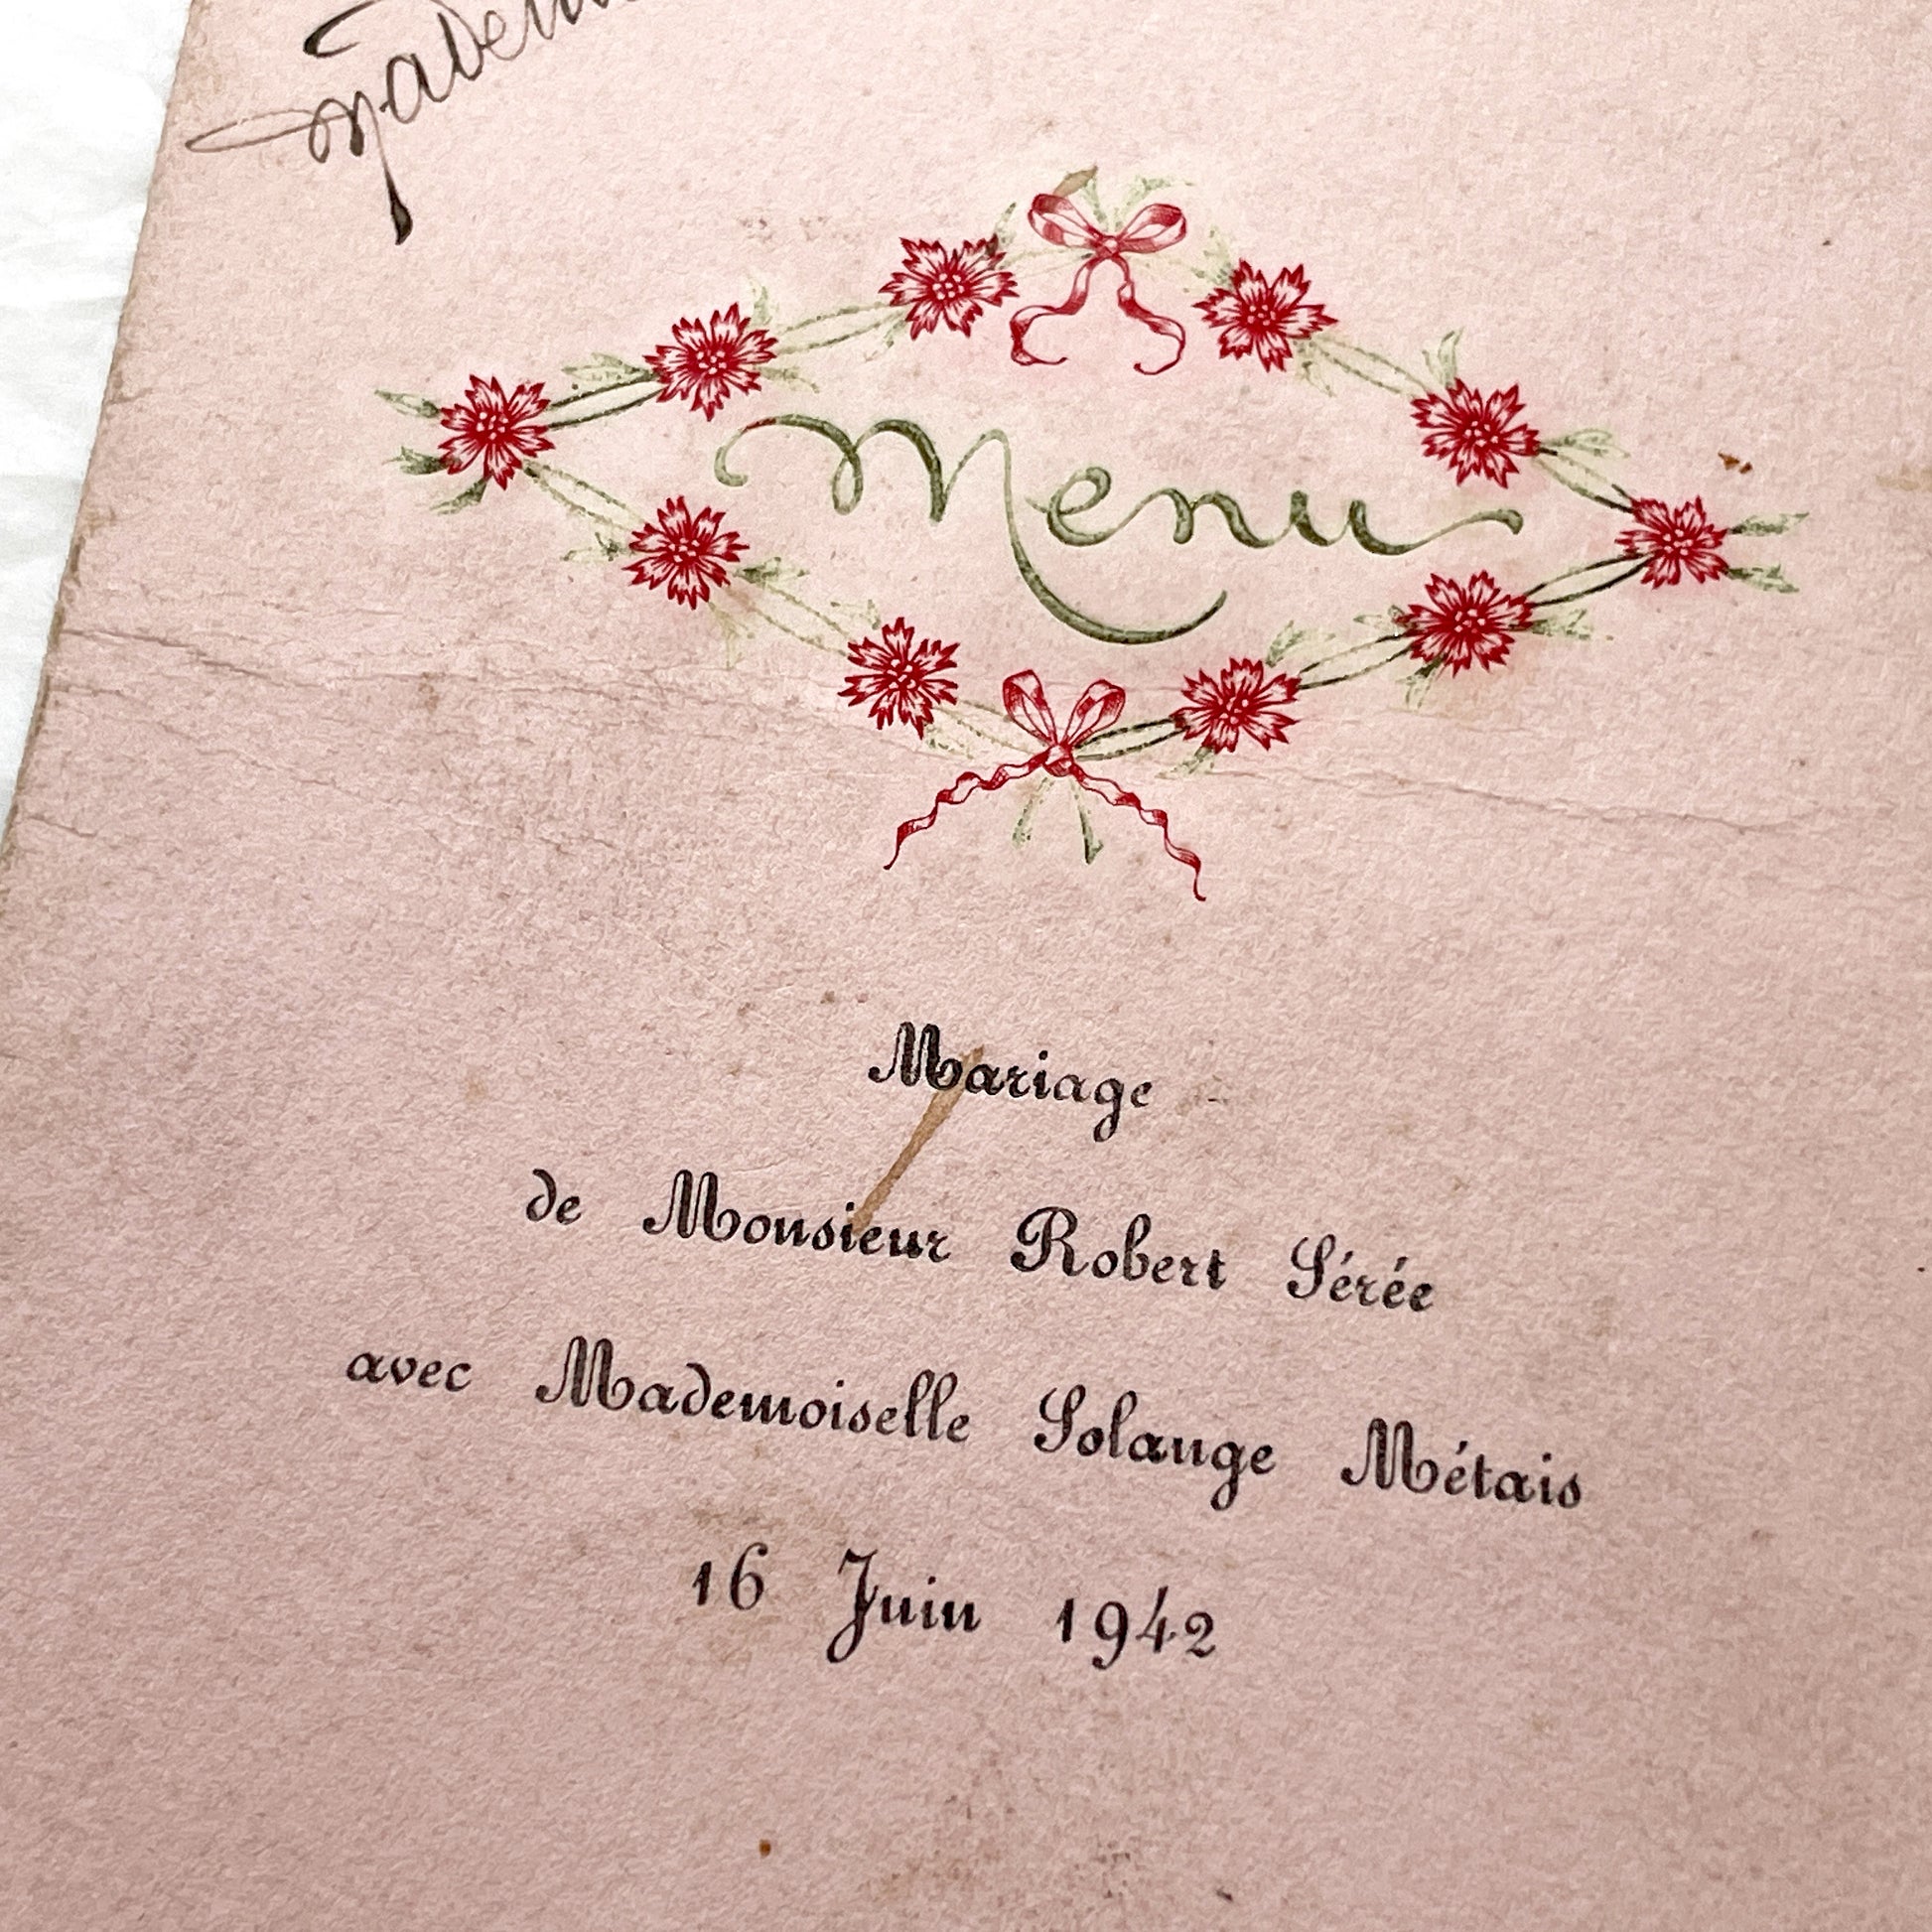 Menu
Mariage
de Monsieur Robert Sérée
avec Mademoiselle Solange Métais
16 Juin 1942